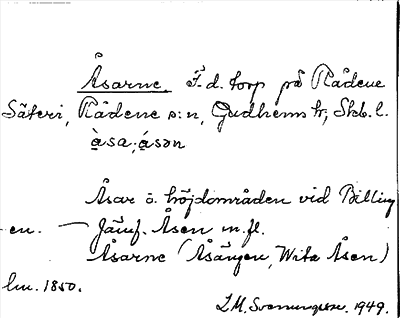 Åsarne. F.d. torp på Rådene
Säteri, Rådene s:n, Gudhems hr, Skb. l.
àsa, ásən
Åsar o. höjdområden vid Billing
en. — Jämf. Åsen m.fl.
Åsarne (Åsängen, Wita Åsen)
lm. 1850.
1949.